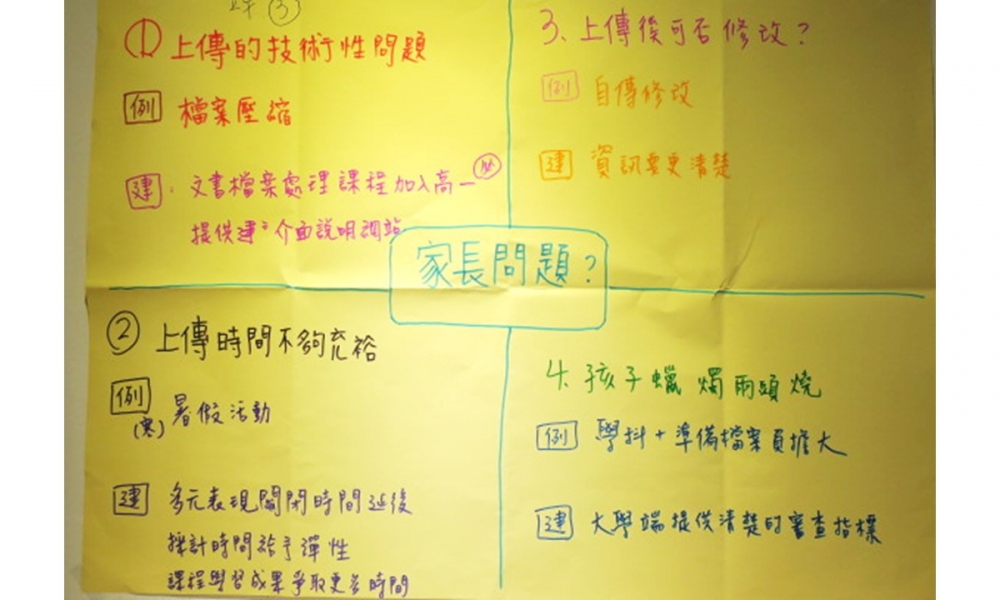 ③
① 上傳的技術性問題
例 檔案壓縮
建：文書檔案處理課程加入高一
提供建 介面說明網站
家長問題？
② 上傳時間不夠充裕
例 暑假活動
(寒)
建 多元表現關閉時間延後
採計時間給予彈性
課程學習成果爭取更多時間
3、上傳後可否修改？
例 自傳修改
建 資訊要更清楚
4、孩子蠟燭兩頭燒
例 學科+準備檔案負擔大
建 大學端提供清楚的審查指標